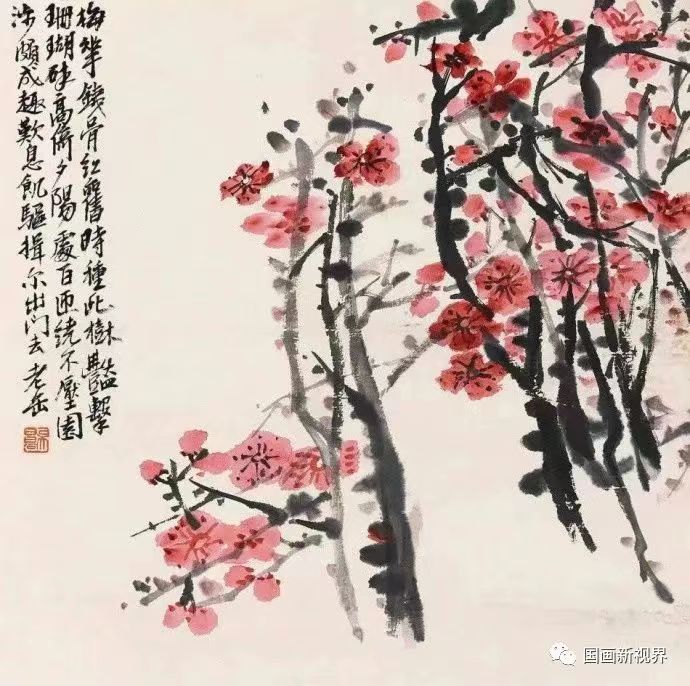 梅華鐵骨紅舊時種此樹豔擊
珊瑚碎高倚夕陽處百匝繞不壓園
涉頗成趣歎息飢驅揖尔出门去老缶
国画新视界